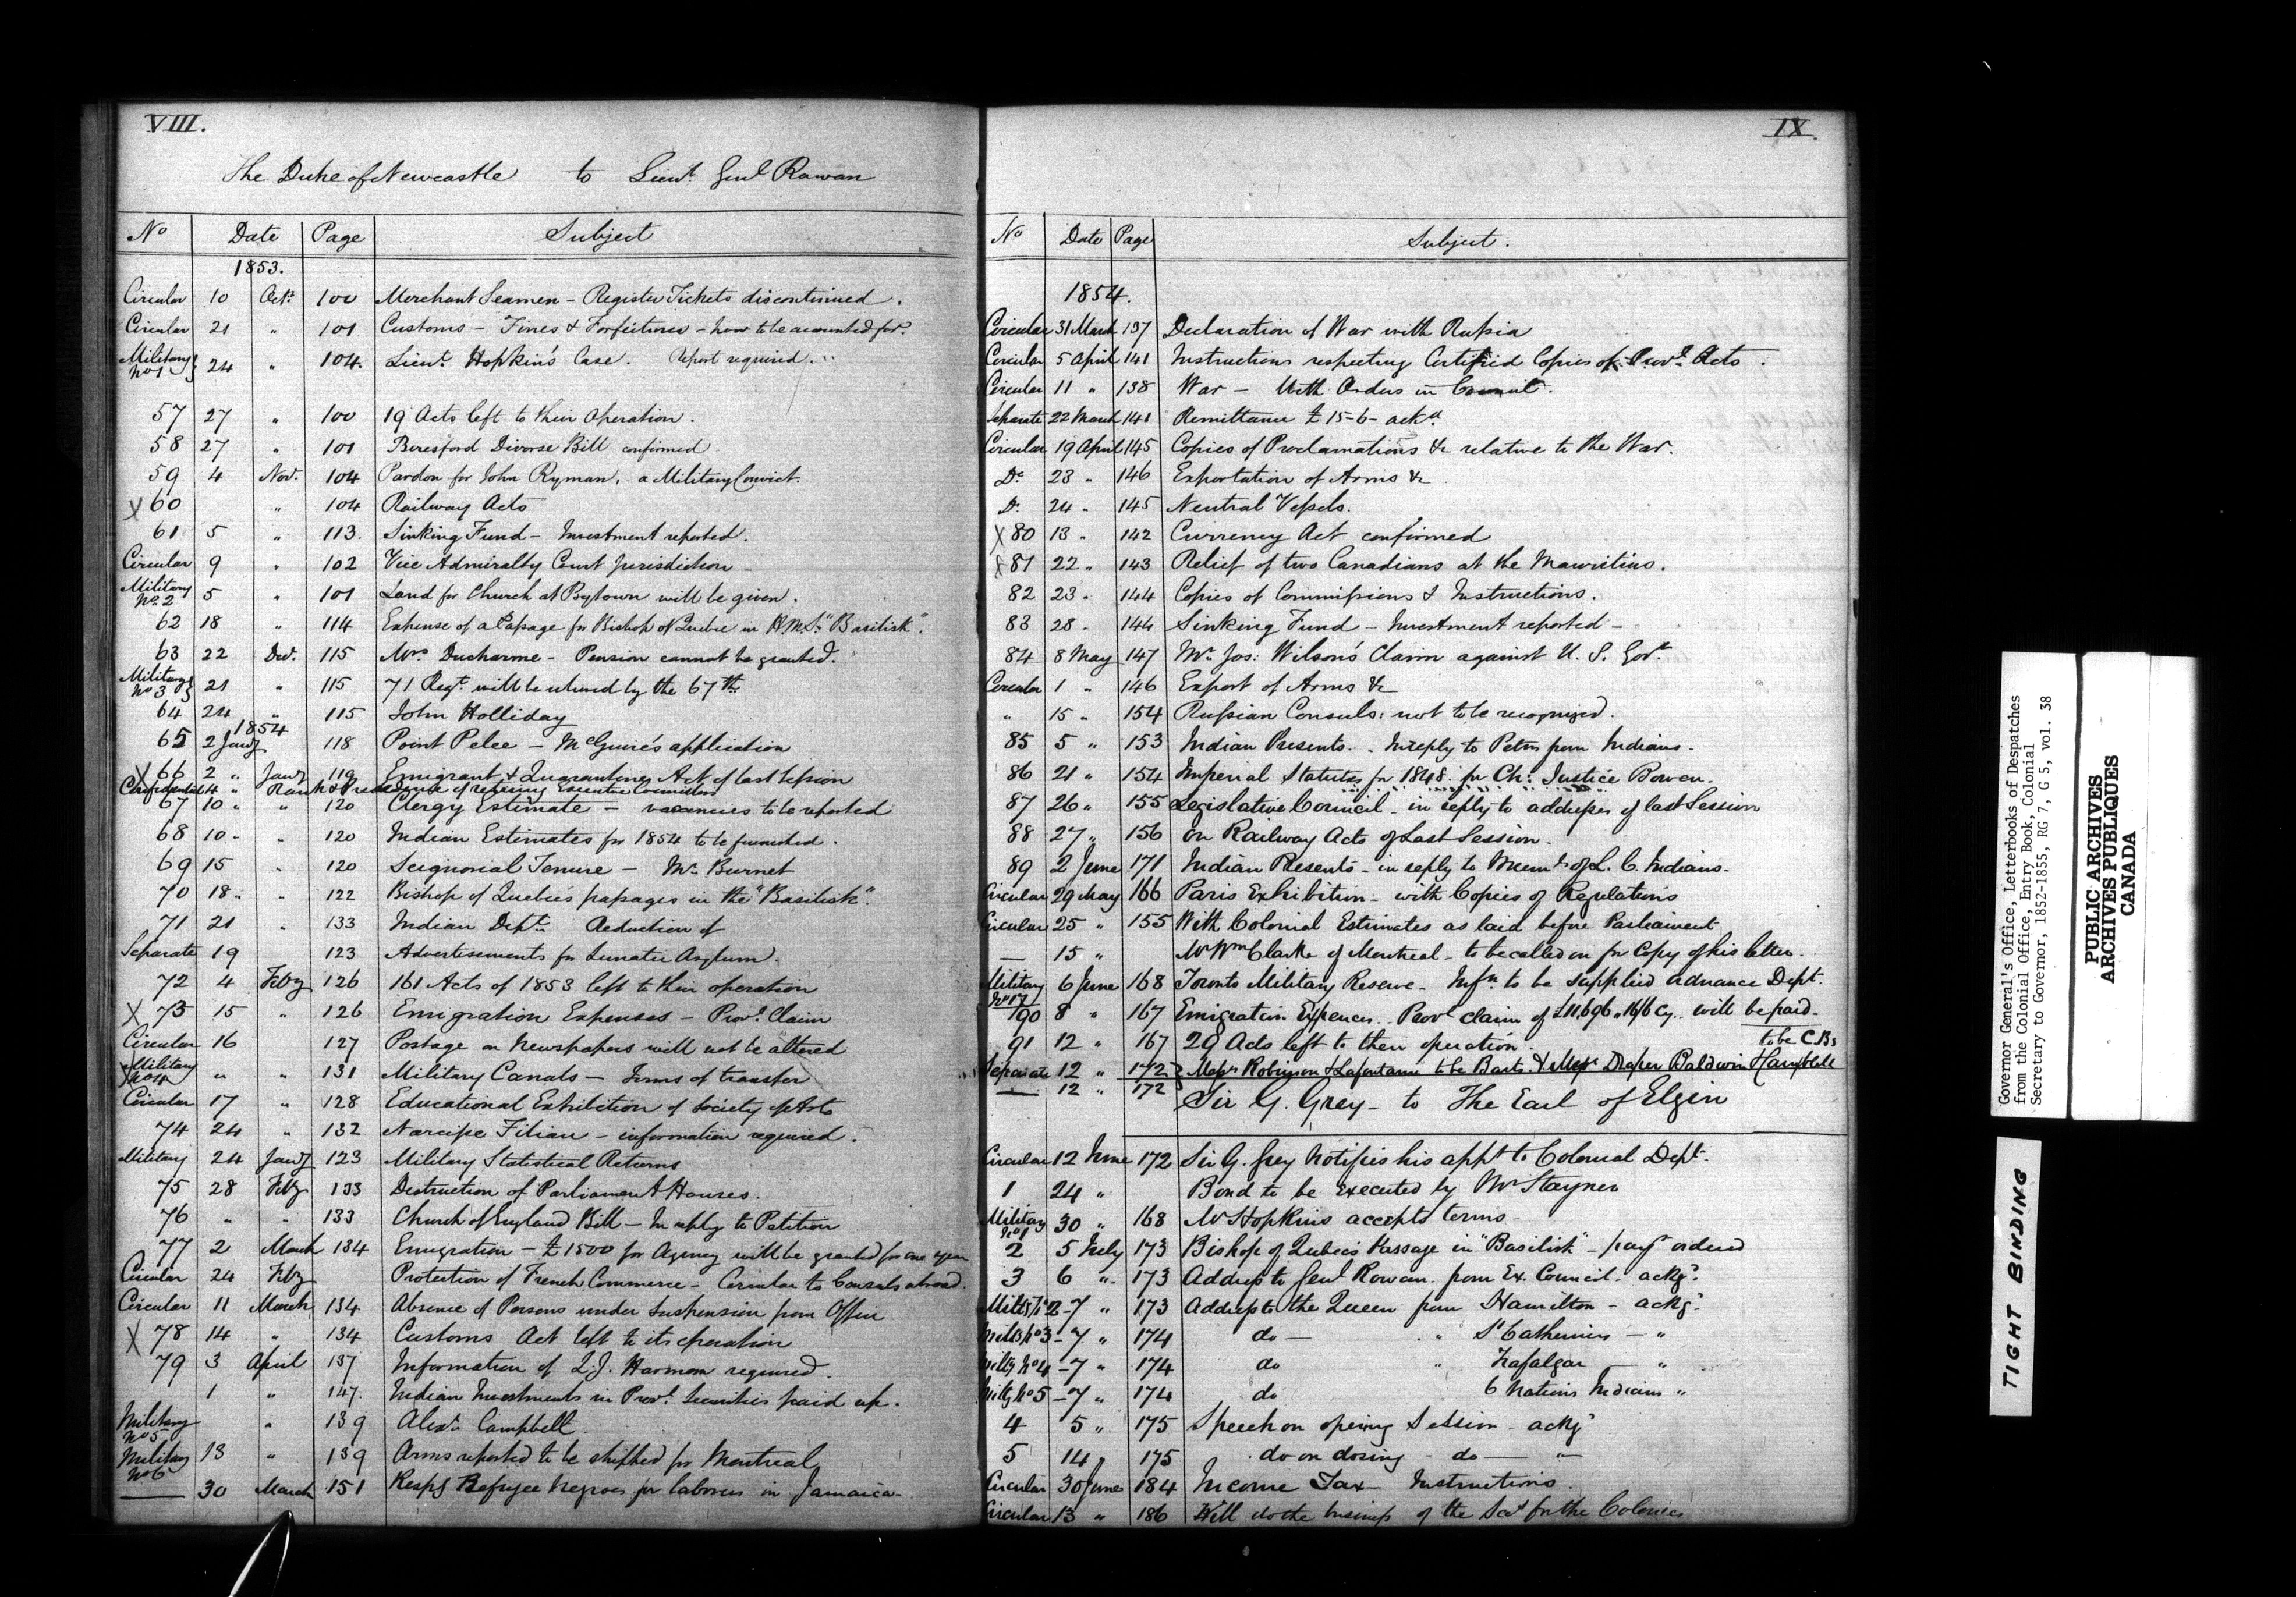 VIII.
The Duke of Newcastle to Lieut. Genl Rowan
No Date Page Subject
1853.
Circular 10 Octr 100 Merchant Seamen - Register Tickets discontinued.
Circular 21 " 101 Customs - Fines & Forfeitures - how to be accounted for.
Military No 1 } 24 " 104. Lieut. Hopkin's Case. Report required.
57 27 " 100 19 Acts left to their operation.
58 27 " 101 Beresford Divorse Bill confirmed
59 4 Novr. 104 Pardon for John Ryman, a Military Convict.
X 60 " 104 Railway Acts
61 5 " 113. Sinking Fund - Investment reported.
Circular 9 " 102 Vice Admiralty Court Jurisdiction -
Military No. 2 5 " 101 Land for Church at Bytown will be given.
62 18 " 114 Expense of a Passage for Bishop of Quebec in H.M.S. "Basilisk".
63 22 Decr. 115 Mrs Ducharme - Pension cannot be granted.
Military No 3 } 21 " 115 71 Regt. will be relieved by the 67th
64 24 " 115 John Holliday
1854
65 2 Jany 118 Point Pelee - McGuire's application
X 66 2 " Jany 119 Emigrant & Quarantine Act of last Session
Confidential 4 " Rank & Precedence of retiring Executive Councillors
67 10 " " 120 Clergy Estimate - vacancies to be reported
68 10 " " 120 Indian Estimates for 1854 to be furnished.
69 15 " 120 Seignorial Tenure - Mr. Burnet
70 18 " " 122 Bishop of Quebec's passages in the "Basilisk".
71 21 " 133 Indian Dept. Reduction of
Separate 19 123 Advertisements for Lunatic Asylum.
72 4 Feby 126 161 Acts of 1853 left to their operation
X 73 15 " 126 Emigration Expenses - Provl. Claim
Circular 16 127 Postage on Newspapers will not be altered
X Military No 4 " " 131 Military Canals - Terms of transfer
Circular 17 " 128 Educational Exhibition of Society of Arts
74 24 " 132 Narcisse Filian - information required.
Military 24 Jany 123 Military Statistical Returns
75 28 Feby 133 Destruction of Parliament Houses.
76 " " 133 Church of England Bill - In reply to Petition
77 2 March 134 Emigration - £1500 for Agency will be granted for one year
Circular 24 Feby Protection of French Commerce - Circular to Consuls abroad.
Circular 11 March 134 Absence of Persons under Suspension from Office
X 78 14 " 134 Customs Act left to its operation
79 3 April 137 Information of Q.J. Harmon required.
1 " 147. Indian Investments in Provl. Securities paid up.
Military No 5 " 139 Alexr. Campbell.
Military No 6 13 " 139 Arms reported to be shipped for Montreal
— 30 March 151 Respg Refugee Negroes for laborers in Jamaica -
IX.
No Date Page Subject.
1854.
Circular 31 March 137 Declaration of War with Russia
Circular 5 April 141 Instructions respecting Certified Copies of Provl. Acts.
Circular 11 " 138 War - With Orders in Council.
Separate 22 March 141 Remittance £15-6- ackd
Circular 19 April 145 Copies of Proclamations &c relative to the War.
Do 23 " 146 Exportation of Arms &c
Do 24 " 145 Neutral Vessels.
X 80 13 " 142 Currency Act confirmed
X 81 22 " 143 Relief of two Canadians at the Mauritius.
82 23 " 144 Copies of Commissions & Instructions.
83 28 " 144 Sinking Fund - Investment reported -
84 8 May 147 Mr. Jos: Wilson's Claim against U. S. Govt.
Circular 1 " 146 Export of Arms &c
" 15 " 154 Russian Consuls: not to be recognized.
85 5 " 153 Indian Presents. - In reply to Petns from Indians.
86 21 " 154 Imperial Statutes for 1848. for Ch: Justice Bowen.
87 26 " 155 Legislative Council - in reply to addresses of last Session
88 27 " 156 On Railway Acts of Last Session.
89 2 June 171 Indian Presents - in reply to Meml. of L. C. Indians.
Circular 29 May 166 Paris Exhibition - with Copies of Regulations
Circular 25 " 155 With Colonial Estimates as laid before Parliament
— 15 " Mr Wm Clarke of Montreal - to be called on for Copy of his letter.
Military No 17 6 June 168 Toronto Military Reserve - Infn. to be supplied Ordnance Dept.
90 8 " 167 Emigration Expences. Provl claim of £11,696 " 16/6 Cy. will be paid.
91 12 " 167 29 Acts left to their operation. to be C.Bs
Separate 12 " 172 } Messrs Robinson & Lafontaine to be Barts & Messrs Draper Baldwin Hampbell
— 12 " 172
Sir G. Grey - to The Earl of Elgin
Circular 12 June 172 Sir G. Grey Notifies his appt to Colonial Dept.
1 24 " Bond to be Executed by Mr Stayner
Military No 1 30 " 168 Mr Hopkins accepts terms -
2 5 July 173 Bishop of Quebec's Passage in "Basilisk" - payt ordered
3 6 " 173 Address to Genl Rowan. from Ex. Council. ackg.
Milty No 2 - 7 " 173 Address to the Queen from Hamilton - ackg.
Milty No 3 - 7 " 174 do - " St Catherines - "
Milty No 4 - 7 " 174 do " Trafalgar - "
Milty No 5 - 7 " 174 do 6 Nations Indians "
4 5 " 175 Speech on opening Session - ackg
5 14 " 175 do on closing - do - "
Circular 30 June 184 Income Tax - Instructions.
Circular 13 " 186 Will do the business of the Secy for the Colonies
Governor General's Office, Letterbooks of Despatches
from the Colonial Office, Entry Book, Colonial
Secretary to Governor, 1852-1855, RG 7, G 5, vol. 38
PUBLIC ARCHIVES
ARCHIVES PUBLIQUES
CANADA
TIGHT BINDING